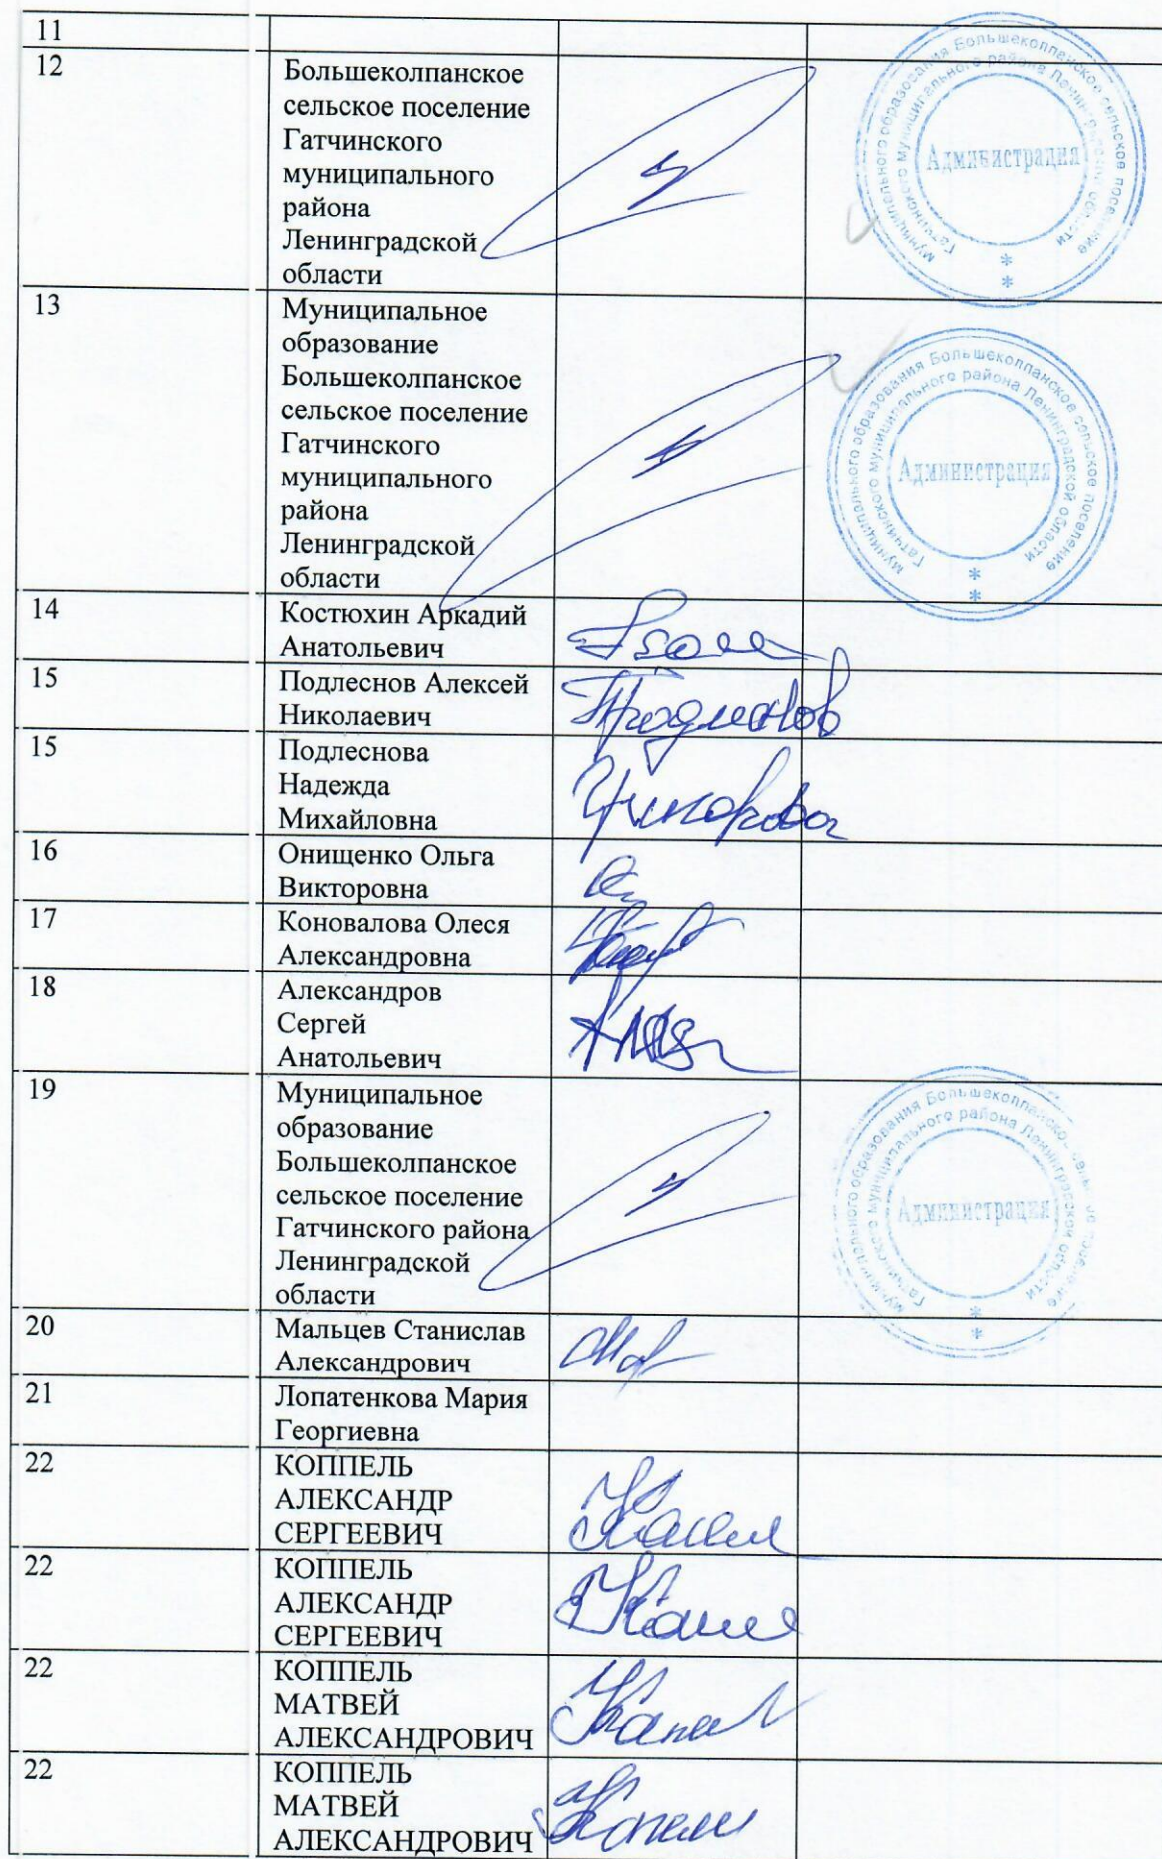 11
12
Большеколпанское
сельское поселение
Гатчинского
муниципального
района
Ленинградской
области
муниципального образования Большеколпанское сельское поселение
Гатчинского муниципального района Ленинградской области
Администрация
13
Муниципальное
образование
Большеколпанское
сельское поселение
Гатчинского
муниципального
района
Ленинградской
области
муниципального образования Большеколпанское сельское поселение
Гатчинского муниципального района Ленинградской области
Администрация
14
Костюхин Аркадий
Анатольевич
15
Подлеснов Алексей
Николаевич
15
Подлеснова
Надежда
Михайловна
16
Онищенко Ольга
Викторовна
17
Коновалова Олеся
Александровна
18
Александров
Сергей
Анатольевич
19
Муниципальное
образование
Большеколпанское
сельское поселение
Гатчинского района
Ленинградской
области
муниципального образования Большеколпанское сельское поселение
Гатчинского муниципального района Ленинградской области
Администрация
20
Мальцев Станислав
Александрович
21
Лопатенкова Мария
Георгиевна
22
КОППЕЛЬ
АЛЕКСАНДР
СЕРГЕЕВИЧ
22
КОППЕЛЬ
АЛЕКСАНДР
СЕРГЕЕВИЧ
22
КОППЕЛЬ
МАТВЕЙ
АЛЕКСАНДРОВИЧ
22
КОППЕЛЬ
МАТВЕЙ
АЛЕКСАНДРОВИЧ